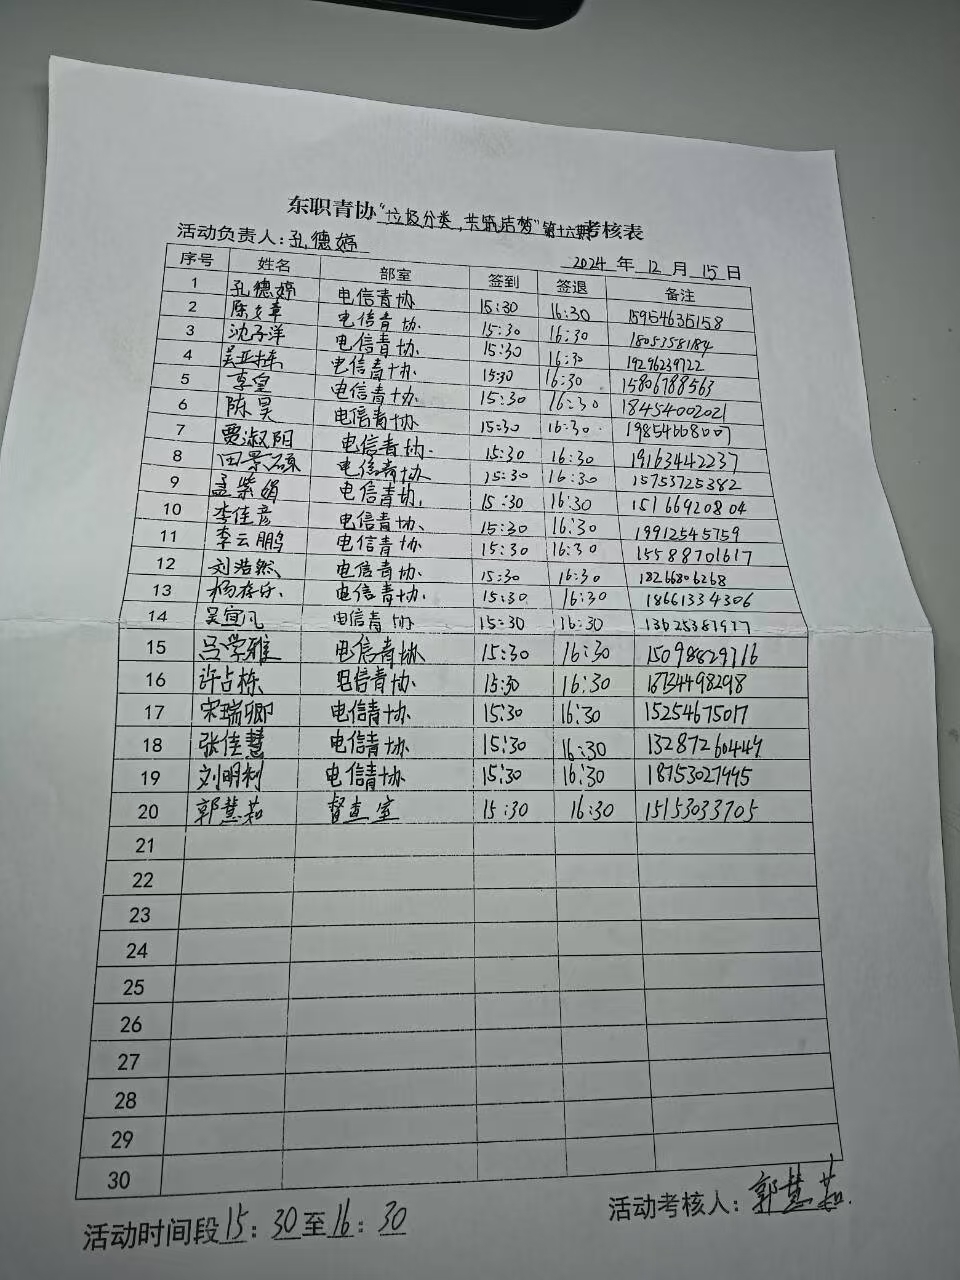 东职青协"垃圾分类,共筑洁梦"第十六期考核表
活动负责人:孔德婷
2024 年 12 月 15 日
序号 姓名 部室 签到 签退 备注
1 孔德婷 电信青协 15:30 16:30 15954635158
2 陈文章 电信青协 15:30 16:30 1805358184
3 沈子洋 电信青协 15:30 16:30 19296239722
4 电信青协 15:30 16:30 15806788563
5 李皇 电信青协 15:30 16:30 18454002021
6 陈昊 电信青协 15:30 16:30 19854668007
7 贾淑阳 电信青协 15:30 16:30 19163442237
8 田景硕 电信青协 15:30 16:30 15753725382
9 孟紫娟 电信青协 15:30 16:30 15166920804
10 李佳彦 电信青协 15:30 16:30 19912545759
11 李云鹏 电信青协 15:30 16:30 15588701617
12 刘浩然 电信青协 15:30 16:30 18266806268
13 电信青协 15:30 16:30 18661334306
14 吴宜凡 电信青协 15:30 16:30
15 吕学雅 电信青协 15:30 16:30 15098829716
16 许占栋 电信青协 15:30 16:30
17 宋瑞卿 电信青协 15:30 16:30 15254675017
18 张佳慧 电信青协 15:30 16:30 13287260447
19 刘明利 电信青协 15:30 16:30 18753027445
20 郭慧茹 督查室 15:30 16:30 15153033705
21
22
23
24
25
26
27
28
29
30
活动时间段 15:30至16:30
活动考核人:郭慧茹